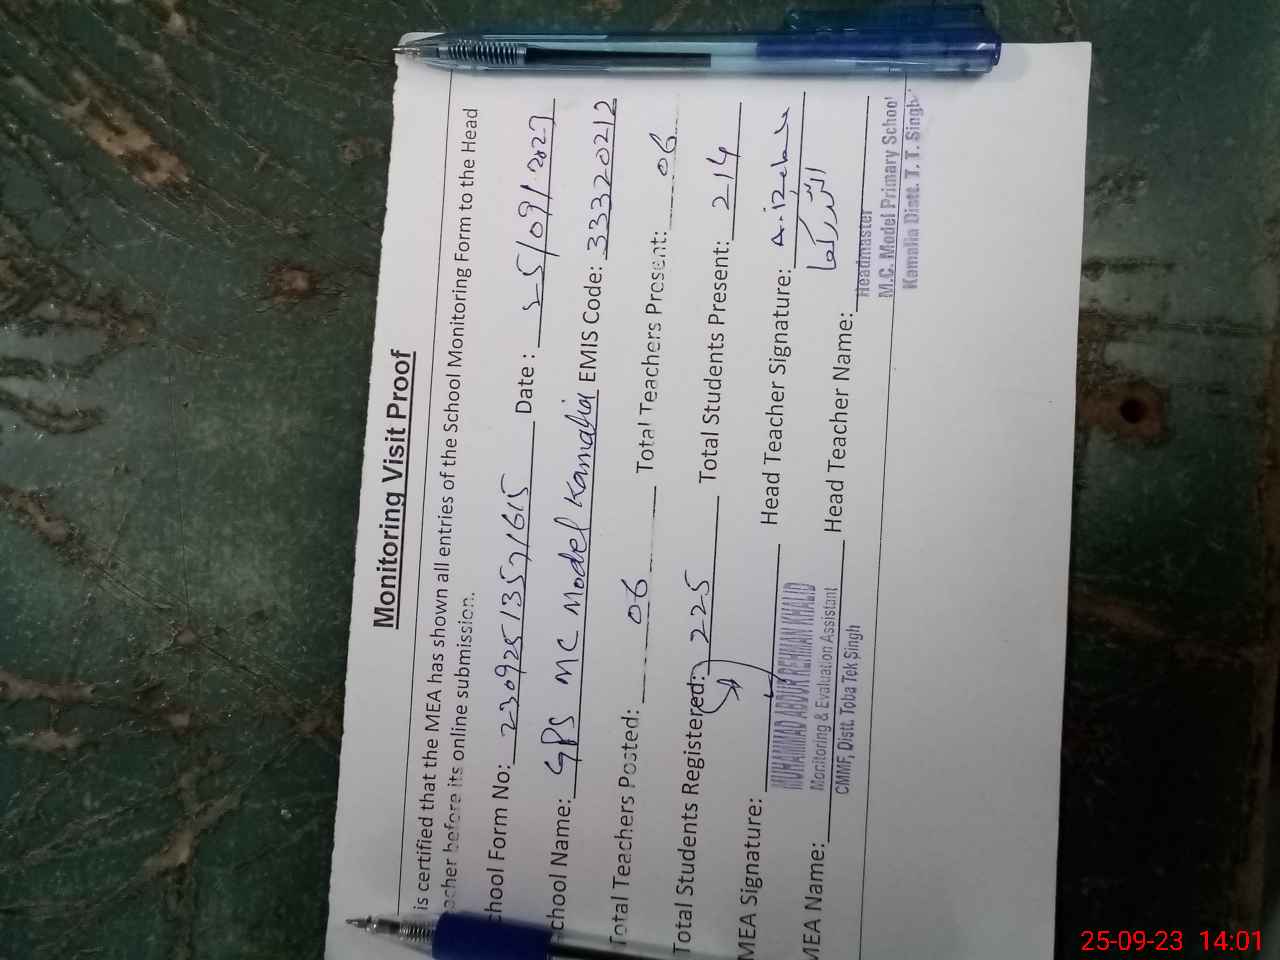 Monitoring Visit Proof
is certified that the MEA has shown all entries of the School Monitoring Form to the Head
acher before its online submission.
chool Form No: 23092513571615 Date : 25/09/2023
chool Name: GPS MC Model Kamalia EMIS Code: 33320212
Total Teachers Posted: 06 Total Teachers Present: 06
Total Students Registered: 225 Total Students Present: 214
MEA Signature: Head Teacher Signature:
MUHAMMAD ABDUR REHMAN KHALID
MEA Name: Monitoring & Evaluation Assistant Head Teacher Name: Headmaster
CMMF, Distt. Toba Tek Singh
M.C. Model Primary School
Kamalia Distt. T. T. Singh
25-09-23 14:01